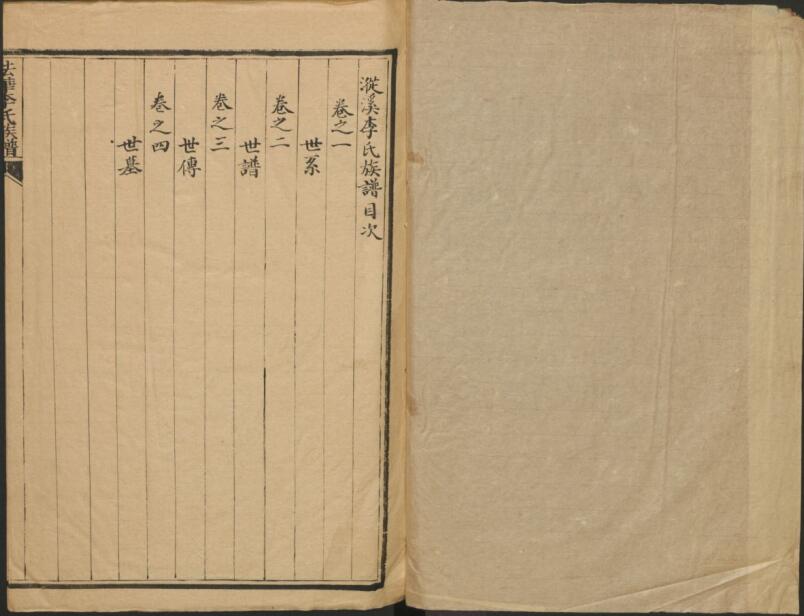 漎溪李氏族譜目次
卷之一
世系
卷之二
世譜
卷之三
世傳
卷之四
世墓
法華李氏族譜